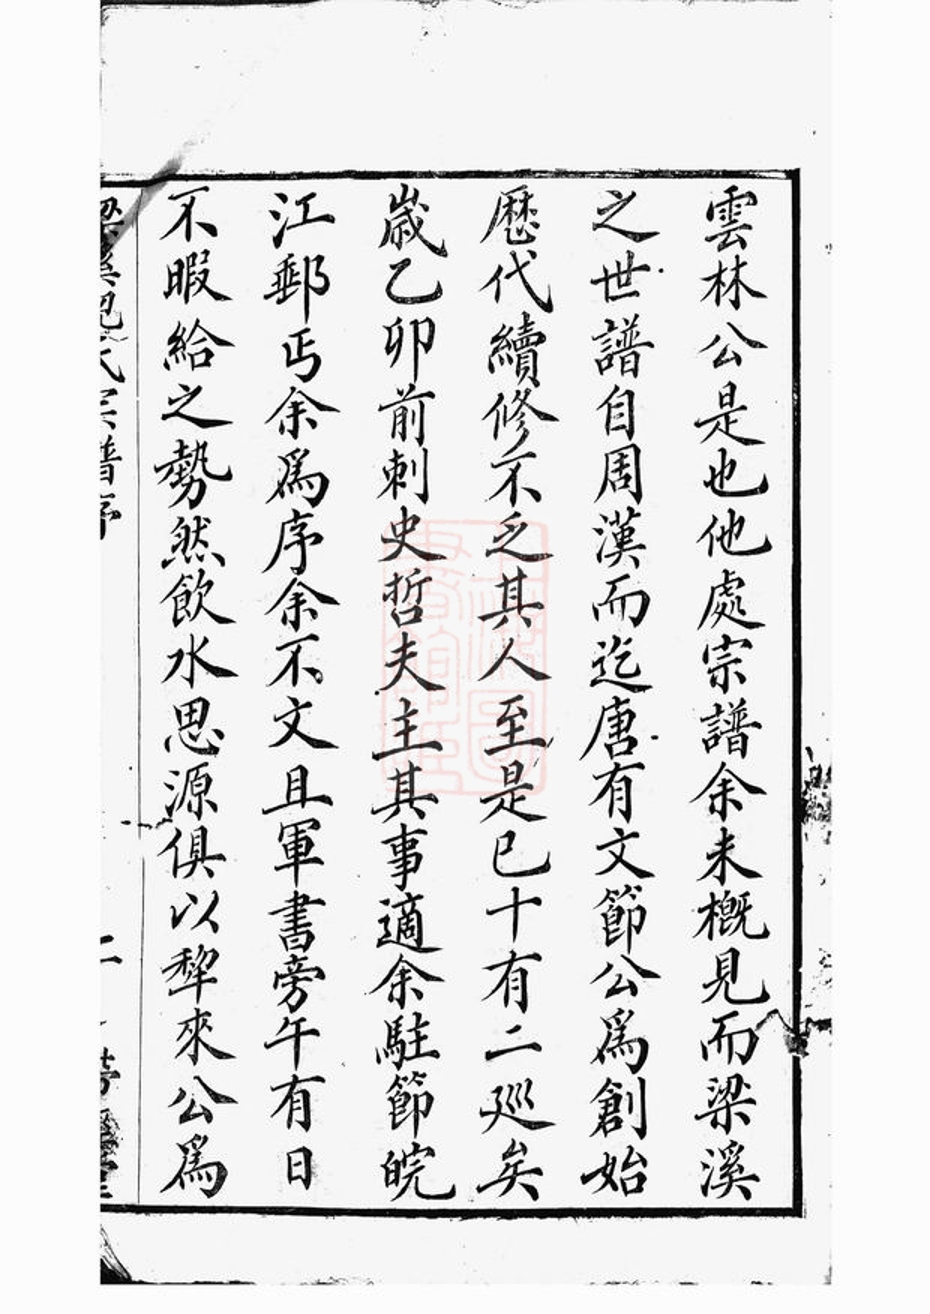 雲林公是也他處宗譜余未概見而梁溪
之世譜自周漢而迄唐有文節公爲創始
歷代續修不乏其人至是已十有二廵矣
歲乙卯前刺史哲夫主其事適余駐節皖
江郵丐余爲序余不文且軍書旁午有日
不暇給之勢然飲水思源俱以犂來公爲
宗譜序
二